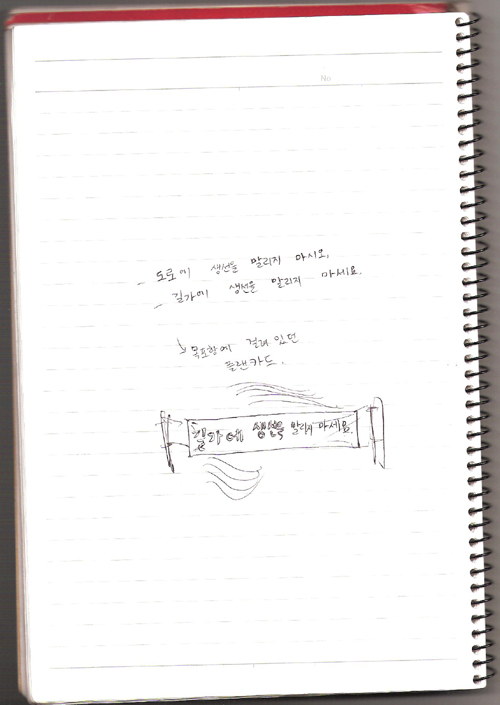 No
- 도로에 생선을 말리지 마시오,
- 길가에 생선을 말리지 마세요.
↳ 목포항에 걸려 있던
플랜카드.
길가에 생선을 말리지 마세요.